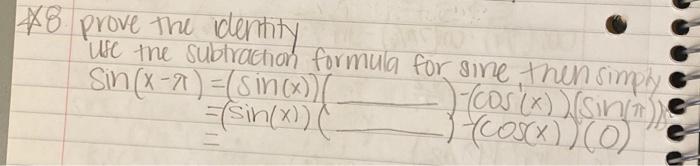 *8 prove the identity
use the subtraction formula for sine, then simply
Sin(x-π)=(sin(x))(______)-(cos(x))(sin(π))
=(sin(x))(______)-(cos(x))(0)
=